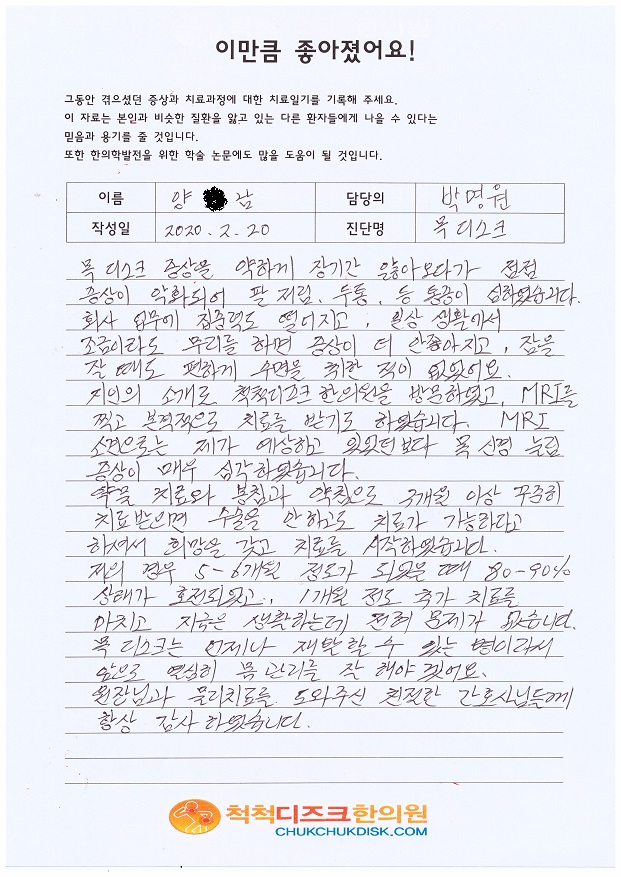 이만큼 좋아졌어요!
그동안 겪으셨던 증상과 치료과정에 대한 치료일기를 기록해 주세요.
이 자료는 본인과 비슷한 질환을 앓고 있는 다른 환자들에게 나을 수 있다는
믿음과 용기를 줄 것입니다.
또한 한의학발전을 위한 학술 논문에도 많을 도움이 될 것입니다.
이름 양 남 담당의 박명원
작성일 2020.2.20 진단명 목디스크
목 디스크 증상을 약하게 장기간 앓아오다가 점점
증상이 악화되어 팔저림, 두통, 등 통증이 심하였습니다.
회사 업무에 집중력도 떨어지고, 일상 생활에서
조금이라도 무리를 하면 증상이 더 안좋아지고, 잠을
잘 때도 편하게 수면을 취한 적이 없었어요.
지인의 소개로 척척디스크한의원을 방문하였고, MRI를
찍고 본격적으로 치료를 받기도 하였습니다. MRI
소견으로는 제가 예상하고 있었던보다 목 신경 눌림
증상이 매우 심각하였습니다.
약물 치료와 봉침과 약침으로 3개월 이상 꾸준히
치료받으면 수술을 안하고도 치료가 가능하다고
하셔서 희망을 갖고 치료를 시작하였습니다.
저의 경우 5-6개월 정도가 되었을 때 80-90%
상태가 호전되었고, 1개월 정도 추가 치료를
마치고 지금은 생활하는데 전혀 문제가 없습니다.
목 디스크는 언제나 재발할 수 있는 병이라서
앞으로 열심히 목 관리를 잘 해야겠어요.
원장님과 물리치료를 도와주신 친절한 간호사님들께
항상 감사 하였습니다.
척척디즈크한의원
CHUKCHUKDISK.COM